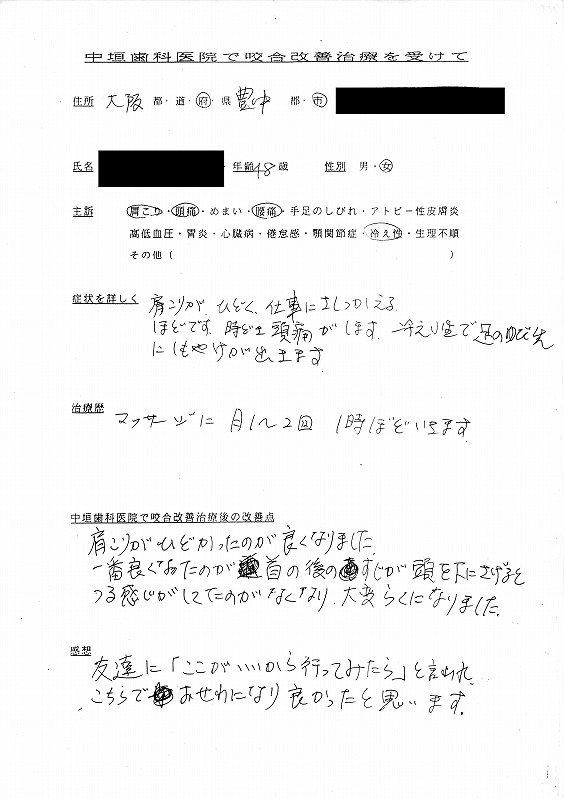 中垣歯科医院で咬合改善治療を受けて
住所 大阪 都・道・府・県 豊中 郡・市
氏名 年齢 48 歳 性別 男・女
主訴 肩こり・頭痛・めまい・腰痛・手足のしびれ・アトピー性皮膚炎
高低血圧・胃炎・心臓病・倦怠感・顎関節症・冷え性・生理不順
その他( )
症状を詳しく 肩こりがひどく、仕事にさしつかえる
ほどです。時どき頭痛がします。冷え性で足のゆび先
にしもやけが出きます
治療歴 マッサージに月1〜2回 1時ほどいきます
中垣歯科医院で咬合改善治療後の改善点
肩こりがひどかったのが良くなりました
一番良くなったのが首の後のすじが頭を下にさげると
つる感じがしてたのがなくなり、大変らくになりました
感想
友達に「ここがいいから行ってみたら」と言われ
こちらでおせわになり良かったと思います。